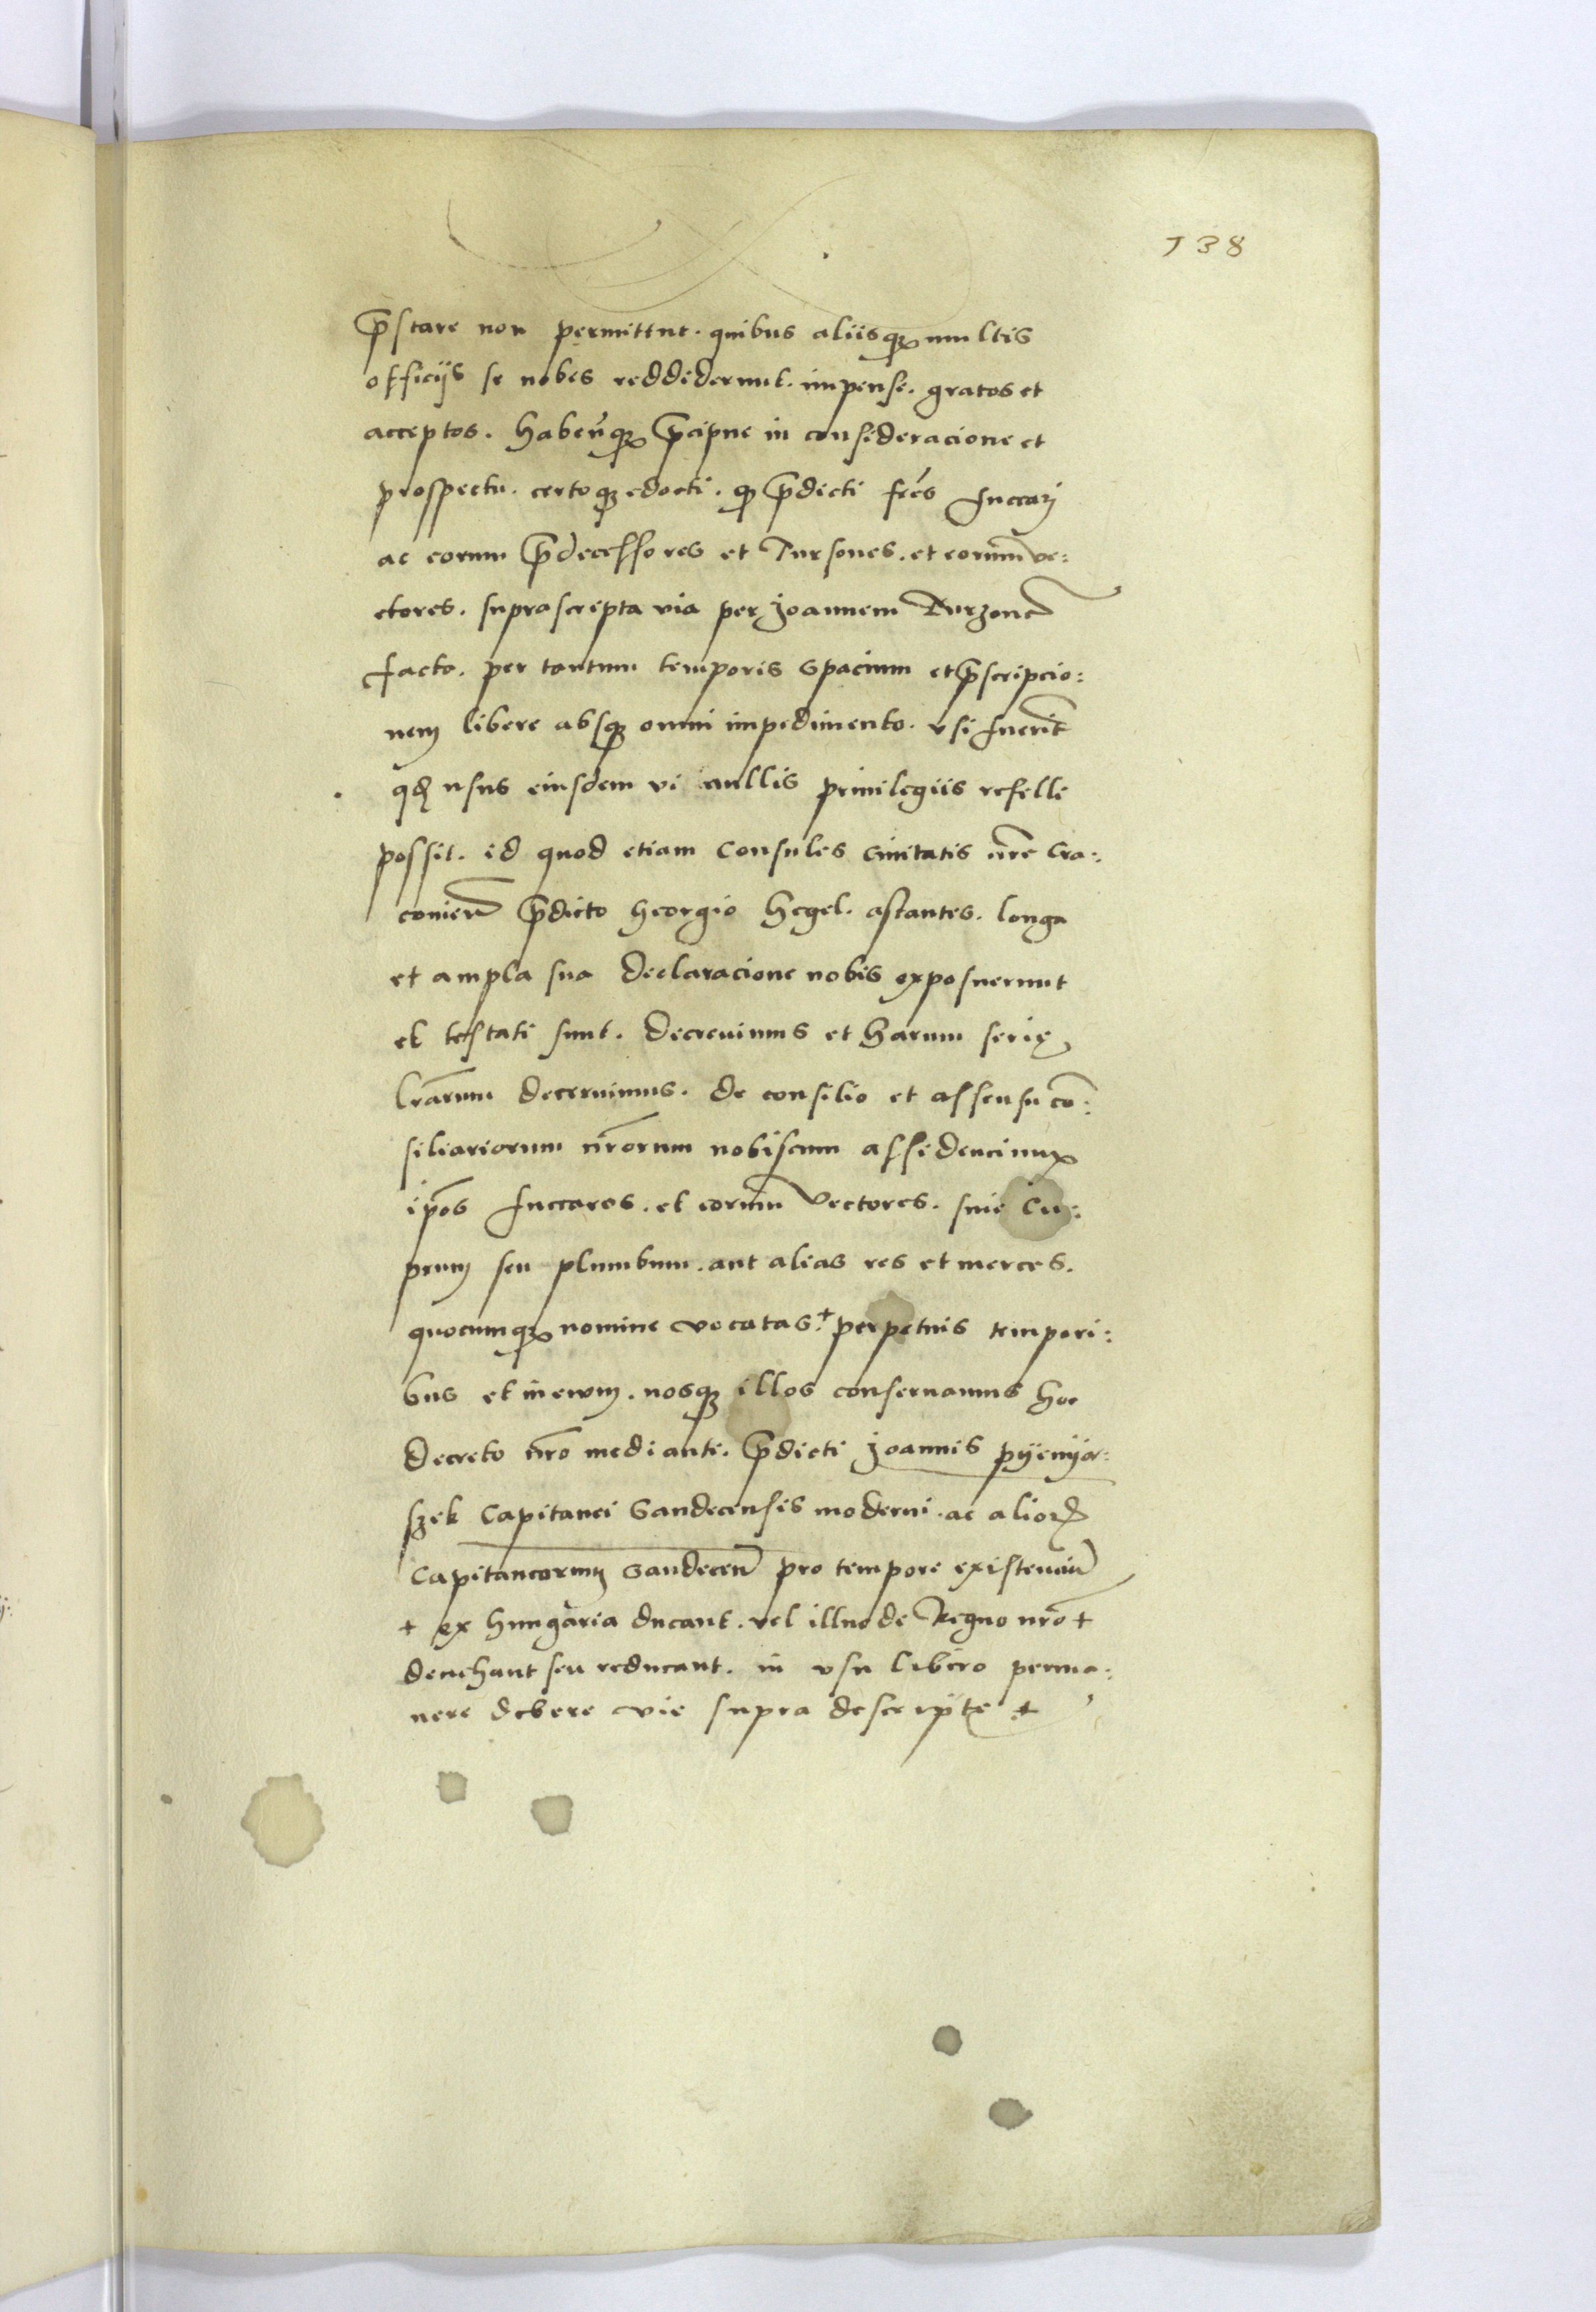 138
p̄stare non permittūt. quibus aliisqȝ multis
officijs se nobis reddiderunt. impense. gratos et
acceptos. habeñqȝ p̄cipue in consideracione et
prospectu. certoqȝ edocti. qȝ p̄dicti fr̄es fuccarj
ac eorum p̄decessores et Tursones. et eorum ve:
ctores. suprascripta via per Joannem Turzonē
facto. per tantum temporis spacium et p̄scripcio:
nem libere absqȝ omni impedimento. vsi fuerīt
qd̄ usus eiusdem vi nullis priuilegiis refelli
possit. id quod etiam Consules Ciuitatis nr̄e Cra:
couieñ p̄dicto Georgio Hegel. astantes. longa
et ampla sua declaracione nobis exposuerunt
et testati sunt. decreuimus et harum serie
lr̄arum decernimus. de consilio et assensu cō:
siliariorum nr̄orum nobiscum assidenciumqȝ
ip̄os fuccaros. et eorum vectores. siue Cu:
prum seu plumbum. aut alias res et merces.
quocumqȝ nomine vocatas.+ perpetuis tempori:
bus et in ewm. nosqȝ illos conseruamus hoc
decreto nr̄o mediante. p̄dicti Joannis pyenyą:
szek Capitanei Sandecensis moderni. ac alioꝝ
Capitaneorum Sandeceñ pro tempore existenciū
+ ex Hungaria ducant. vel illuc de Regno nr̄o +
deuehant seu reducant. in vsu libero perma:
nere debere vie supra descripte +